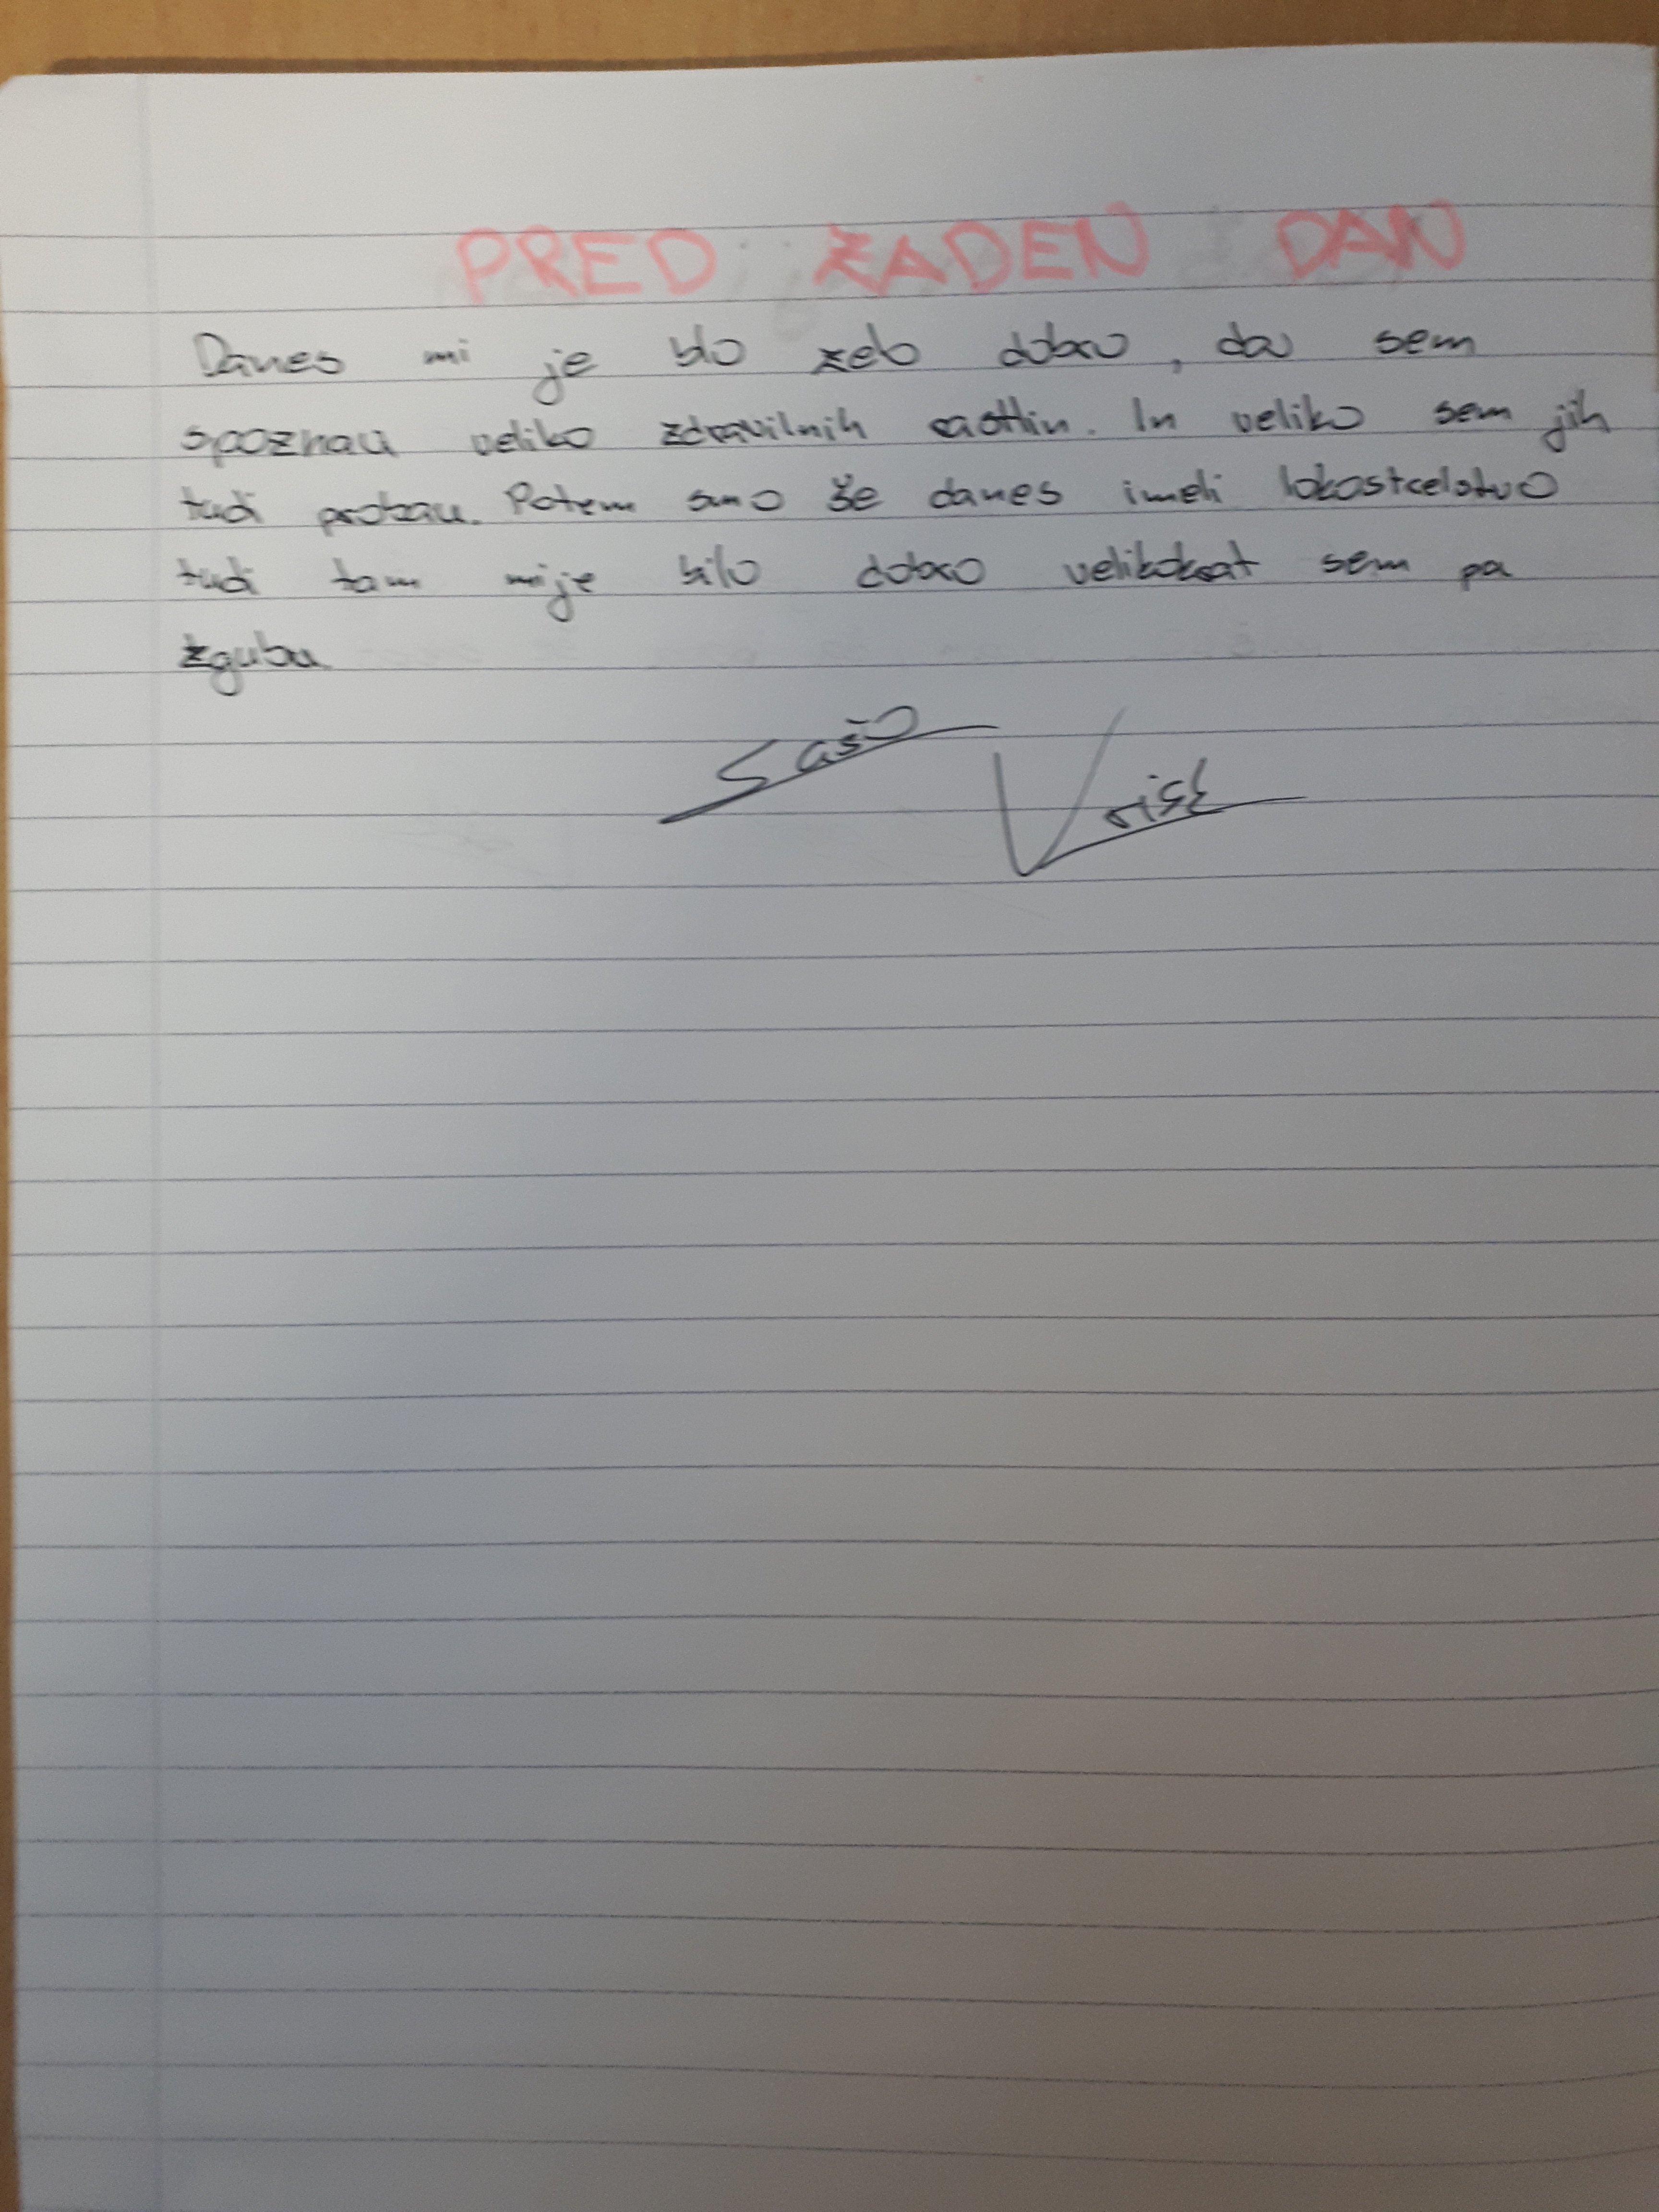 PRED ZADEN DAN
Danes mi je blo zelo dobro, da sem
spoznau veliko zdravilnih rastlin. In veliko sem jih
tudi probau. Potem smo še danes imeli lokostrelstvo
tudi tam mi je bilo dobro velikokrat sem pa
zgubu
Sašo